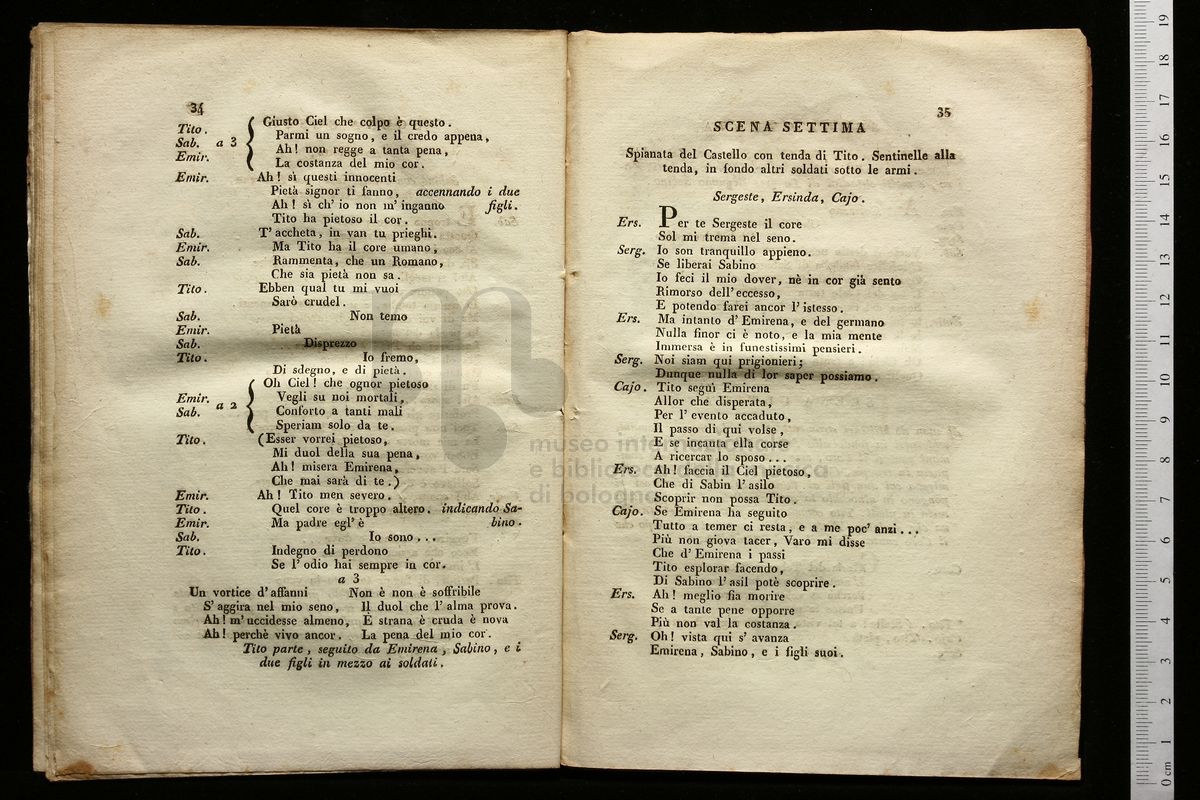 34
Tito.
Sab. a 3
Emir.
Giusto Ciel che colpo è questo.
Parmi un sogno, e il credo appena,
Ah! non regge a tanta pena,
La costanza del mio cor.
Emir. Ah! sì questi innocenti
Pietà signor ti fanno, accennando i due
Ah! sì ch' io non m' inganno figli.
Tito ha pietoso il cor.
Sab. T' accheta, in van tu prieghi.
Emir. Ma Tito ha il core umano,
Sab. Rammenta, che un Romano,
Che sia pietà non sa.
Tito. Ebben qual tu mi vuoi
Sarò crudel.
Sab. Non temo
Emir. Pietà
Sab. Disprezzo
Tito. Io fremo,
Di sdegno, e di pietà.
Emir. a 2
Sab.
Oh Ciel! che ognor pietoso
Vegli su noi mortali,
Conforto a tanti mali
Speriam solo da te.
Tito. (Esser vorrei pietoso,
Mi duol della sua pena,
Ah! misera Emirena,
Che mai sarà di te.)
Emir. Ah! Tito men severo.
Tito. Quel core è troppo altero. indicando Sa-
Emir. Ma padre egl' è bino.
Sab. Io sono...
Tito. Indegno di perdono
Se l' odio hai sempre in cor.
a 3
Un vortice d' affanni Non è non è soffribile
S' aggira nel mio seno, Il duol che l' alma prova.
Ah! m' uccidesse almeno, E strana è cruda è nova
Ah! perchè vivo ancor. La pena del mio cor.
Tito parte, seguito da Emirena, Sabino, e i
due figli in mezzo ai soldati.
35
SCENA SETTIMA
Spianata del Castello con tenda di Tito. Sentinelle alla
tenda, in fondo altri soldati sotto le armi.
Sergeste, Ersinda, Cajo.
Ers. Per te Sergeste il core
Sol mi trema nel seno.
Serg. Io son tranquillo appieno.
Se liberai Sabino
Io feci il mio dover, nè in cor già sento
Rimorso dell' eccesso,
E potendo farei ancor l' istesso.
Ers. Ma intanto d' Emirena, e del germano
Nulla finor ci è noto, e la mia mente
Immersa è in funestissimi pensieri.
Serg. Noi siam qui prigionieri;
Dunque nulla di lor saper possiamo.
Cajo. Tito seguì Emirena
Allor che disperata,
Per l' evento accaduto,
Il passo di qui volse,
E se incauta ella corse
A ricercar lo sposo...
Ers. Ah! faccia il Ciel pietoso,
Che di Sabin l' asilo
Scoprir non possa Tito.
Cajo. Se Emirena ha seguito
Tutto a temer ci resta, e a me poc' anzi...
Più non giova tacer, Varo mi disse
Che d' Emirena i passi
Tito esplorar facendo,
Di Sabino l' asil potè scoprire.
Ers. Ah! meglio fia morire
Se a tante pene opporre
Più non val la costanza.
Serg. Oh! vista qui s' avanza
Emirena, Sabino, e i figli suoi.